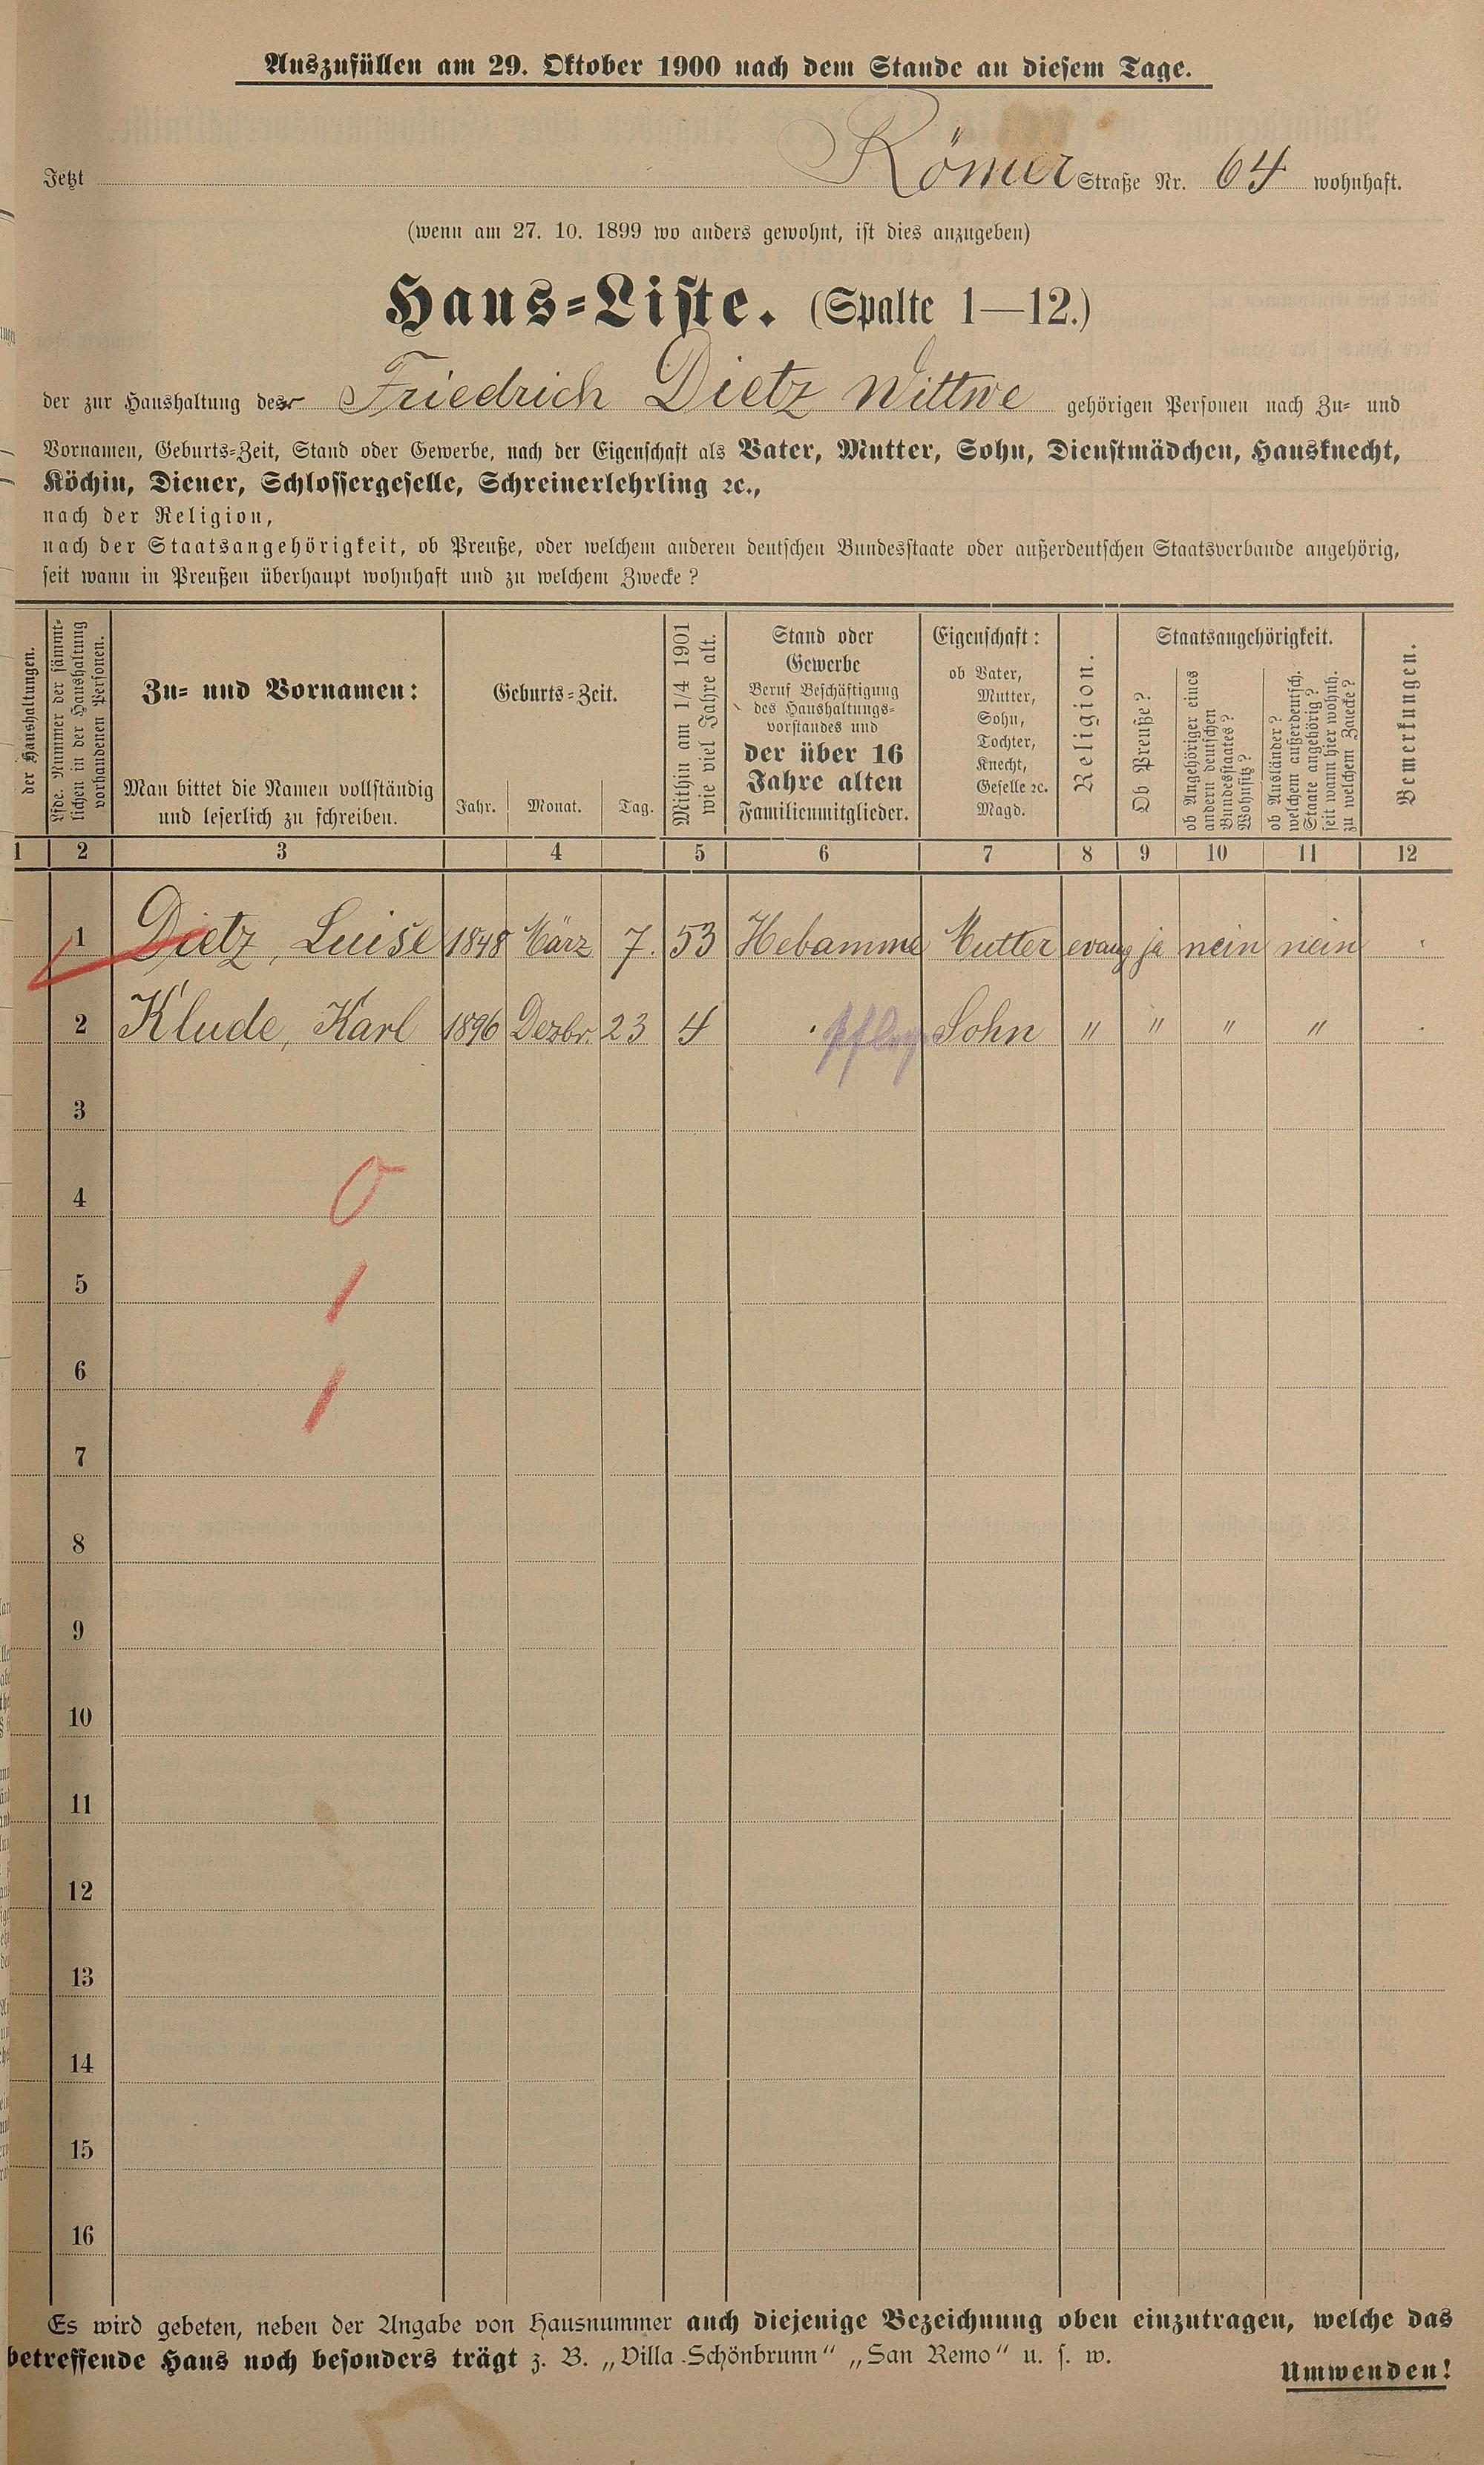 Auszufüllen am 29. Oktober 1900 nach dem Stande an diesem Tage.
Jetzt Römer Straße Nr. 64 wohnhaft.
(wenn am 27. 10. 1899 wo anders gewohnt, ist dies anzugeben)
Haus-Liste. (Spalte 1—12.)
der zur Haushaltung der Friedrich Dietz Wittwe gehörigen Personen nach Zu- und
Vornamen, Geburts-Zeit, Stand oder Gewerbe, nach der Eigenschaft als Vater, Mutter, Sohn, Dienstmädchen, Hausknecht,
Köchin, Diener, Schlossergeselle, Schreinerlehrling ꝛc.,
nach der Religion,
nach der Staatsangehörigkeit, ob Preuße, oder welchem anderen deutschen Bundesstaate oder außerdeutschen Staatsverbande angehörig,
seit wann in Preußen überhaupt wohnhaft und zu welchem Zwecke?
der Haushaltungen.
Lfde. Nummer der sämmt-
lichen in der Haushaltung
vorhandenen Personen.
Zu- und Vornamen:
Man bittet die Namen vollständig
und leserlich zu schreiben.
Geburts-Zeit.
Jahr. Monat. Tag.
Mithin am 1/4 1901
wie viel Jahre alt.
Stand oder
Gewerbe
Beruf Beschäftigung
des Haushaltungs-
vorstandes und
der über 16
Jahre alten
Familienmitglieder.
Eigenschaft:
ob Vater,
Mutter,
Sohn,
Tochter,
Knecht,
Geselle ꝛc.
Magd.
Religion.
Staatsangehörigkeit.
Ob Preuße?
ob Angehöriger eines
andern deutschen
Bundesstaates?
Wohnsitz?
ob Ausländer?
welchem außerdeutsch.
Staate angehörig?
seit wann hier wohnh.
zu welchem Zwecke?
Bemerkungen.
1 2 3 4 5 6 7 8 9 10 11 12
1 Dietz, Luise 1848 März 7. 53 Hebamme Mutter evang ja nein nein
2 Klude, Karl 1896 Dezbr. 23 4 Pfleg Sohn " " " "
3
4 0
5 1
6 1
7
8
9
10
11
12
13
14
15
16
Es wird gebeten, neben der Angabe von Hausnummer auch diejenige Bezeichnung oben einzutragen, welche das
betreffende Haus noch besonders trägt z. B. „Villa Schönbrunn" „San Remo" u. s. w.
Umwenden!